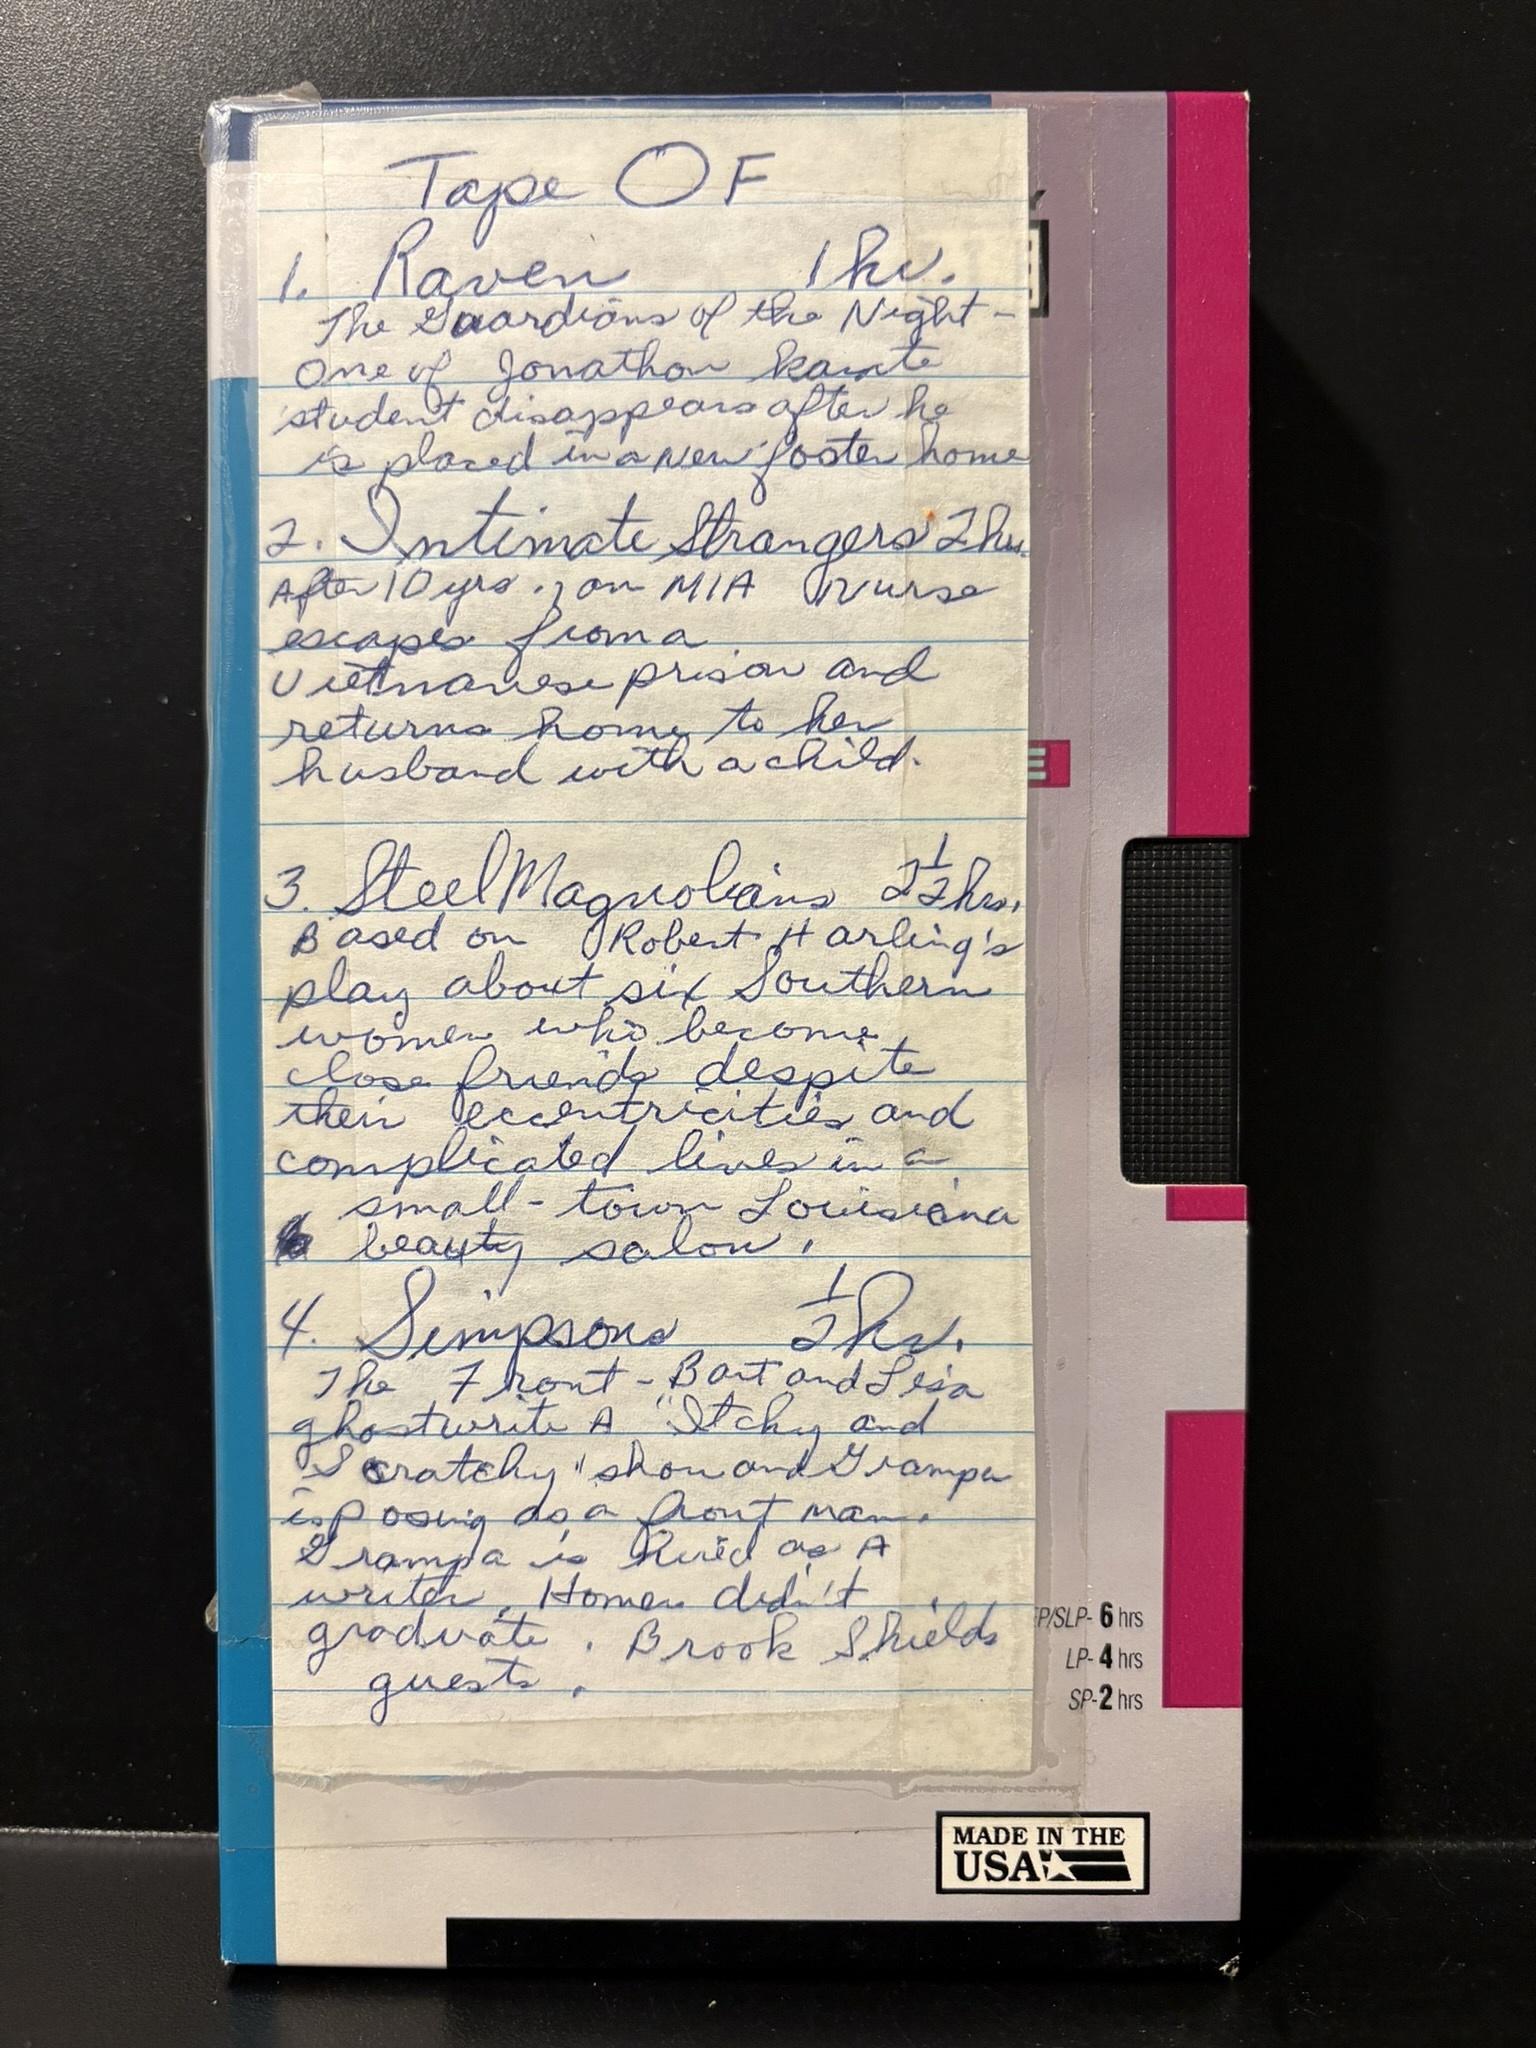 Tape OF
1. Raven 1 hr.
The Guardians of the Night -
One of Jonathon karate
student disappears after he
is placed in a new foster home
2. Intimate Strangers 2 hrs.
After 10 yrs., an MIA Nurse
escapes from a
Vietnamese prison and
returns home to her
husband with a child.
3. Steel Magnolians 2 1/2 hrs.
Based on Robert Harling's
play about six Southern
women who become
close friends despite
their eccentricities and
complicated lives in a
small-town Louisiana
beauty salon.
4. Simpsons 1/2 hr.
The Front - Bart and Lisa
ghostwrite A "Itchy and
Scratchy" show and Grampa
is posing as a front man.
Grampa is hired as A
writer. Homer didn't
graduate. Brook Shields
guests.
E
EP/SLP- 6 hrs
LP- 4 hrs
SP- 2 hrs
MADE IN THE
USA